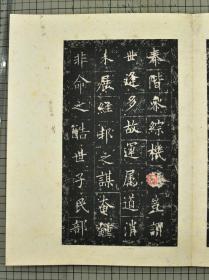 泰階永綜機衡豈謂
世逢多故運屬道消
未展經邦之謀奄鍾
非命之酷世子民部